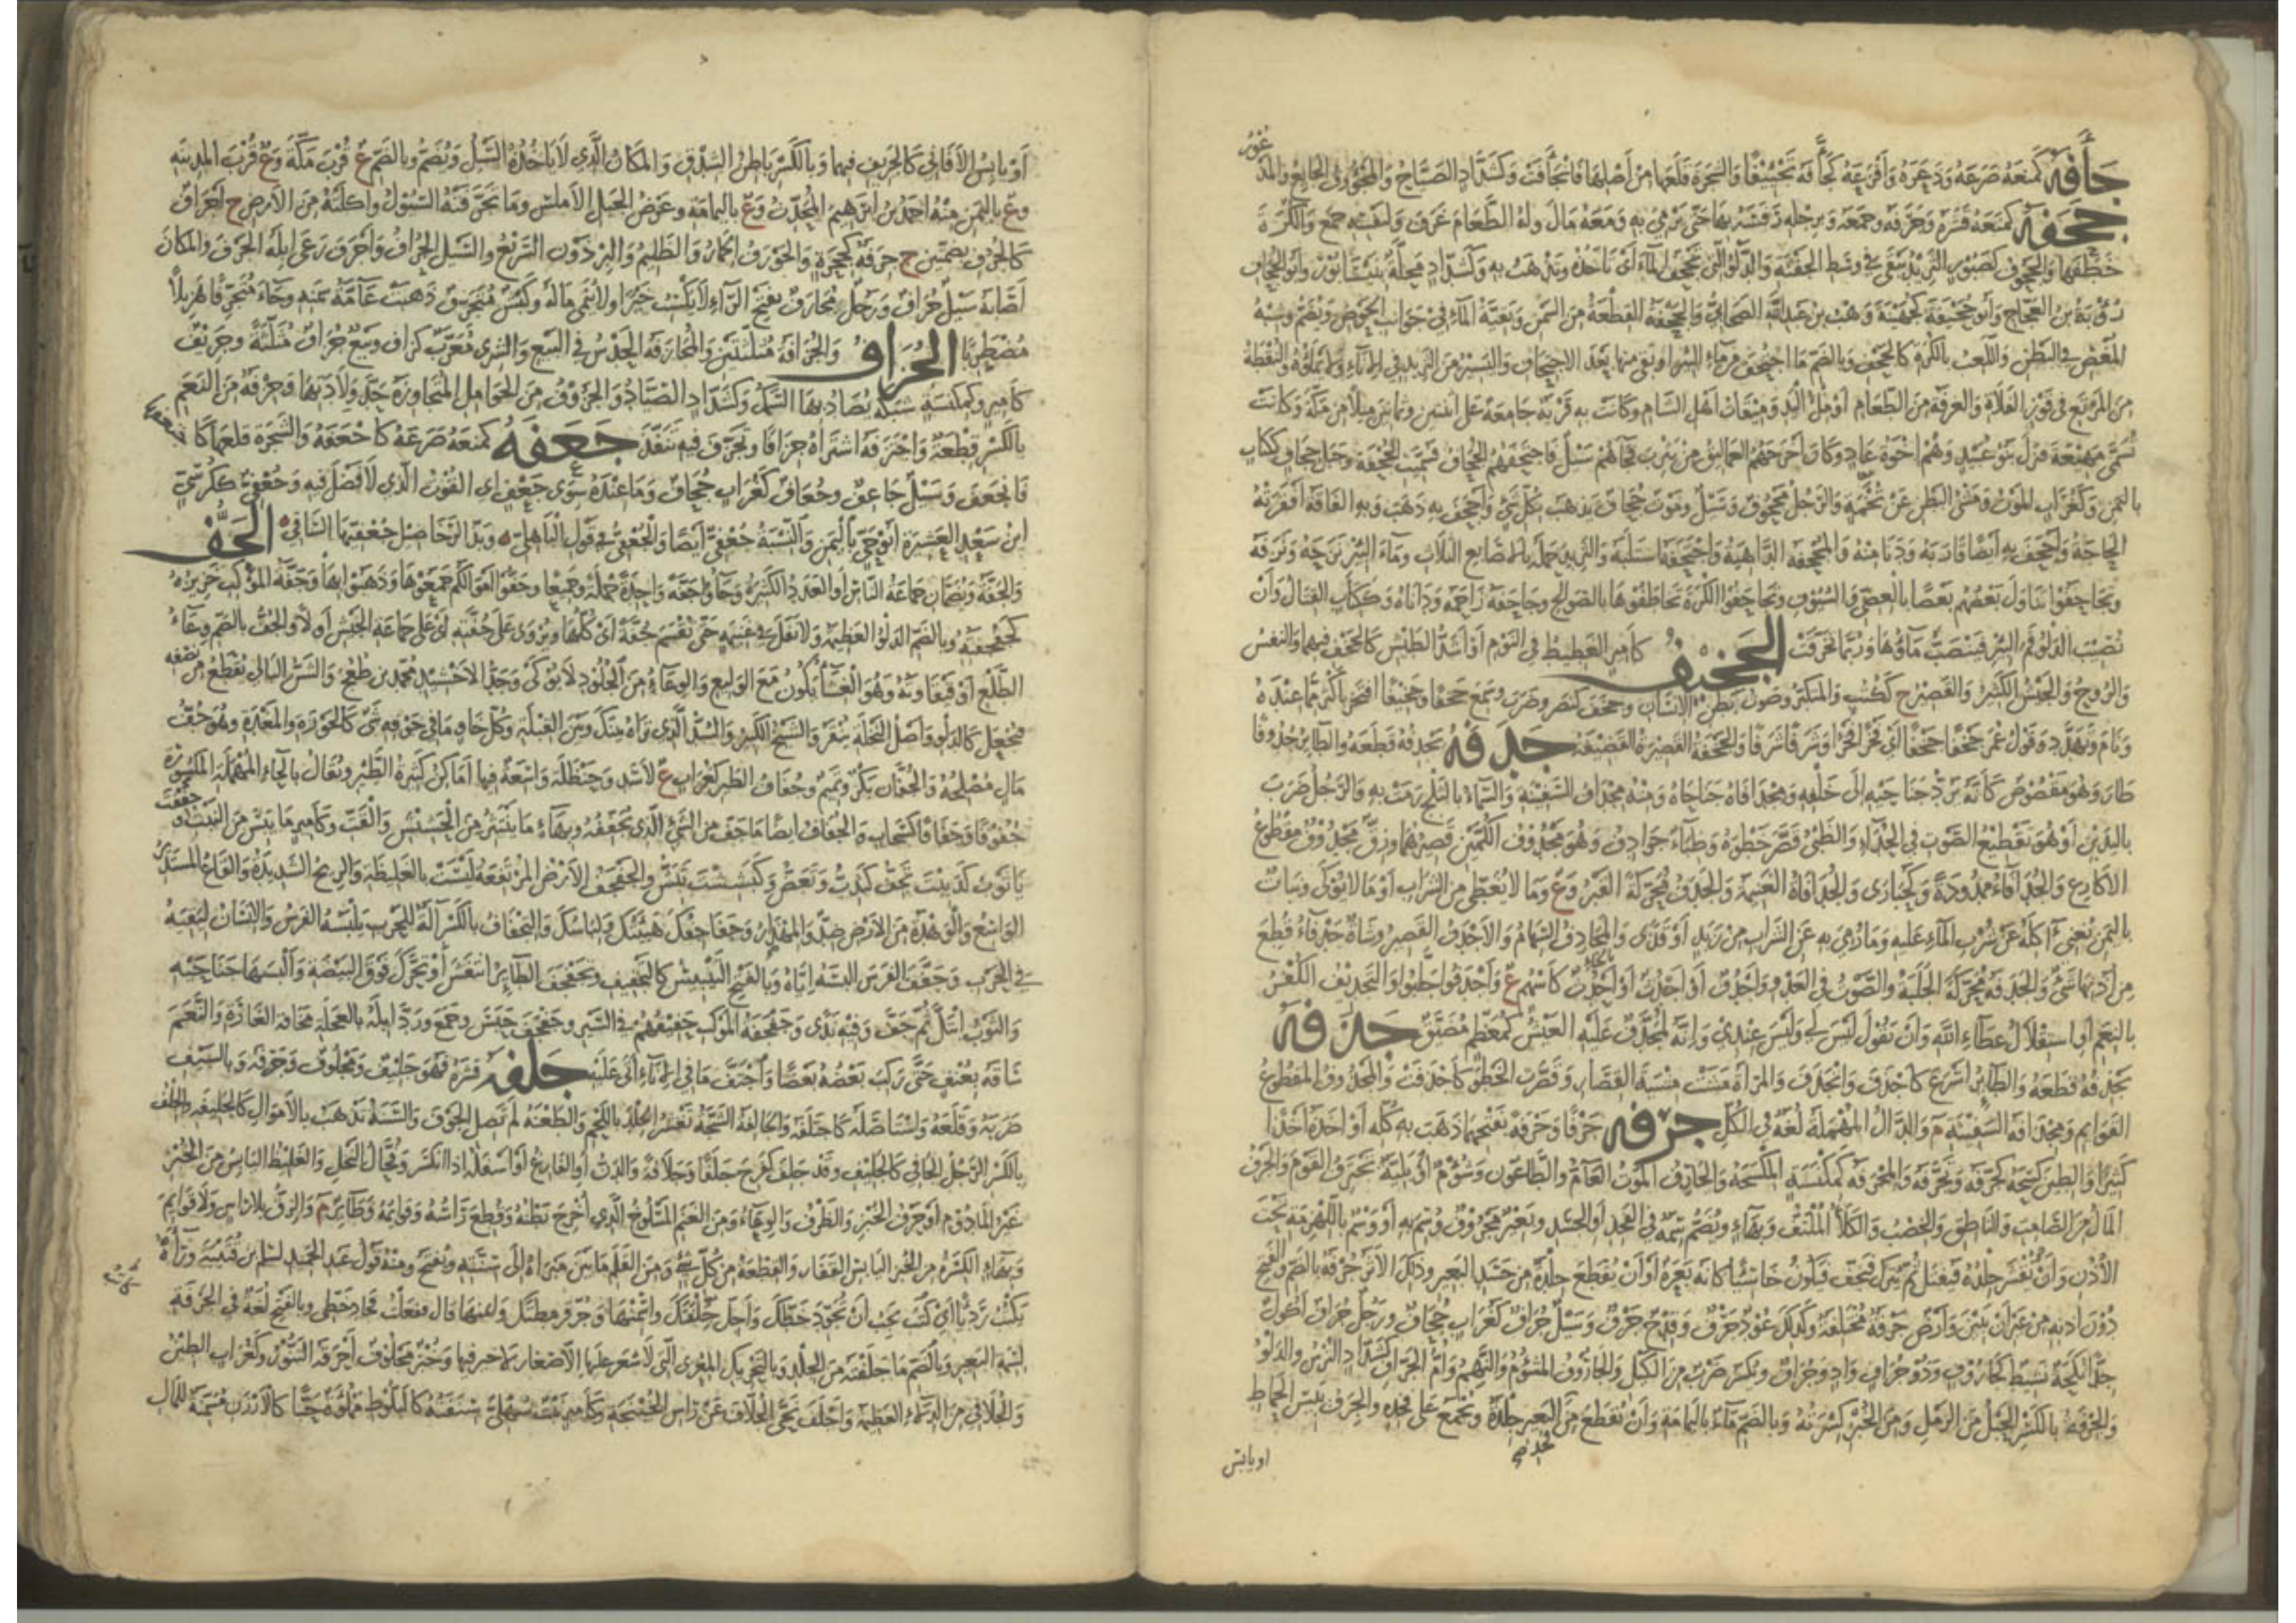 جأفه كمنعه صرعه وذعره وأفزعه كجأفه تجئيفا والشجرة قلعها من أصلها فانجأفت وكشداد الصياح والمجؤوف الجايع والمذ
عور
جحفه كمنعه قشره وجرفه وجمعه وبرجله رفسه بها حتى يرمي به ومعه مال وله الطعام غرف ولنفسه جمع والكرة
خطفها والجحوف كصبور الثريد يبقى في وسط الجفنة والدلو التي تجحف الماء اي تأخذه وتذهب به وكشداد محلة بنيسابور وابو الجحاف
رؤبة بن العجاج وأبو جحيفة كجهينة وهب بن عبد الله الصحابي والجحفة القطعة من السمن وبقية الماء في جوانب الحوض ويضم وشبه
المغص في البطن واللعب بالكرة كالجحف وبالضم ما اجتحف من ماء البئر او بقي منها بعد الاجتحاف واليسير من الثريد في الاناء لا يملؤه والنقطة
من المرتع في قوز الفلاة والغرفة من الطعام او ملء اليد وميقات اهل الشام وكانت به قرية جامعة على اثنين وثمانين ميلا من مكة وكانت
تسمى مهيعة فنزل بنو عبيد وهم اخوة عاد وكان اخرجهم العماليق من يثرب فجاءهم سيل فاجتحفهم الجحاف فسميت الجحفة وجبل جحاف ككتاب
باليمن وكغراب الموت ومشي البطن عن تخمة والرجل مجحوف وسيل وموت جحاف يذهب بكل شيء وأجحف به ذهب وبه الفاقة أفقرته
الحاجة وأجحف به ايضا قاربه ودنا منه والمجحفة الداهية واجتحفه استلبه والثريد حمله بالاصابع الثلاث وماء البئر نزحه ونزفه
وتجاحفوا تناول بعضهم بعضا بالعصي والسيوف وتجاحفوا الكرة تخاطفوها بالصوالج وجاحفه زاحمه وداناه وككتاب القتال وأن
تصيب الدلو فم البئر فينصب ماؤها وربما تخرقت الجخيف كأمير الغطيط في النوم او أشد الطيش كالجخف فيهما والنفس
والروح والجيش الكثير والقصير ج ككتب والمتكبر وصوت بطن الانسان وجخف كنصر وضرب وسمع جخفا وجخيفا افتخر بأكثر مما عنده
ونام وتهدد وقول عمر جخفا جخفا اي فخرا فخرا وشرفا شرفا والجخفة القصيرة القضيفة جدفه يجدفه قطعه والطائر جدوفا
طار وهو مقصوص كأنه يرد جناحيه الى خلفه ومجدافاه جناحاه ومنه مجداف السفينة والسماء بالثلج رمت به والرجل ضرب
باليدين او هو تقطيع الصوت في الحداء والظبي قصر خطوه وظباء جوادف وهو مجدوف الكمين قصيرهما وزق مجدوف مقطوع
الاكارع والجدافاء ممدودة وكحبارى والجدافاة الغنيمة والجدف محركة القبر وع وما لا يغطى من الشراب او ما لا يوكى ونبات
باليمن يغني آكله عن شرب الماء عليه وما رمي به عن الشراب من زبد او قذى والمجادف السهام والاجدف القصير وشاة جدفاء قطع
من أذنها شيء والجدفة محركة الجلبة والصوت في العدو وأجدف او أجدث او أحدث كأسهم ع وأجدفوا جلبوا والتجديف الكفر
بالنعم او استقلال عطاء الله وأن تقول ليس لي وليس عندي وانه لمجدف عليه العيش كمعظم مضيق جذفه
يجذفه قطعه والطائر اسرع كأجذف وانجذف والمرأة مشت مشية القصار وقصرت الخطو كأجذفت والمجذوف المقطوع
القوايم ومجذافة السفينة م والدال المهملة لغة في الكل جرفه جرفا وجرفة بفتحهما ذهب به كله أو أخذه أخذا
كثيرا والطين كسحه كجرفه وتجرفه والمجرفة كمكنسة المكسحة والجارف الموت العام والطاعون وشؤم أو بلية تجترف القوم والجرف
المال من الصامت والناطق والخصب والكلأ الملتف وبهاء ويضم سمة في الفخذ او الجسد وبعير مجروف وسم به او وسم باللهزمة تحت
الأذن وأن تقشر جلده فيفتل ثم يترك فيجف فيكون جاسئا كأنه بعرة أو أن تقطع جلدة من جسد البعير وذلك الاثر جرفة بالضم والفتح
دون أذنه من غير أن تبين وأرض جرفة مختلفة وكذلك عود جرف وقدح جرف وسيل جراف كغراب جحاف ورجل جراف أكول
جدا نكحة نشيط كجاروف وذو جراف واد وجراف ويكسر ضرب من الكيل والجاروف المشؤوم والنهم وأم الجراف كشداد الترس والدلو
والجرفة بالكسر الحبل من الرمل ومن الخبز كسرته وبالضم ماءة باليمامة وأن تقطع من البعير جلدة وتجمع على فخذه والجرف يبيس الحماط
او يابس
أو يابس الأفاني كالجريف فيهما وبالكسر باطن الشدق والمكان الذي لا يأخذه السيل ويضم وبالضم ع قرب مكة وع قرب المدينة
وع باليمن منه احمد بن ابرهيم المحدث وع باليمامة وعرض الجبل الاملس وما تجرفته السيول وأكلته من الارض ج أجراف
كالجرف بضمتين ج جرفة كجحرة والجورف الحمار والظليم والبرذون السريع والسيل الجراف وأجرف رعى ابله الجرف والمكان
اصابه سيل جراف ورجل مجارف بفتح الراء لا يكسب خيرا ولا ينمي ماله وكبش متجرف ذهبت عامة سمنه وجاء متجرفا هزيلا
مضطربا الجزاف والجزافة مثلثتين والمجازفة الحدس في البيع والشرى معرب كزاف وبيع جزاف مثلثة وجزيف
كأمير وكمكنسة شبكة يصاد بها السمك وكشداد الصياد والجزوف من الحوامل المتجاوزة حد ولادتها وجزفة من النعم
بالكسر قطعة واجتزفه اشتراه جزافا وتجزف فيه تنفذ جعفه كمنعه صرعه كأجعفه والشجرة قلعها كاجتعفها
فانجعفت وسيل جاعف وجعاف كغراب جحاف وما عنده سوى جعف اي القوت الذي لا فضل فيه وجعفي ككرسي
ابن سعد العشيرة أبو حي باليمن والنسبة جعفي أيضا والجعفي في قول الباهلي وبذ الرخاضيل جعفيها الساقي الجف
والجفة ويضمان جماعة الناس او العدد الكثير وجاؤا جفة واحدة جملة وجميعا وجفوا اموالكم جمعوها وذهبوا بها وجفة الموكب هزيزه
كجفجفته وبالضم الدلو العظيمة ولا نفل في غنيمة حتى تقسم جفة أي كلها ويروى على جفته أي على جماعة الجيش أولا والجف بالضم وعاء
الطلع او قيقاوته وهو الغشاء يكون مع الوليع والوعاء من الجلود لا يوكى وجد الاخشيد محمد بن طغج والشن البالي يقطع من نصفه
فيجعل كالدلو وأصل النخلة ينقر والشيخ الكبير والسد الذي تراه بينك وبين القبلة وكل خاو ما في جوفه شيء كالجوزة والمغدة وهو جف
مال مصلحه والجفان بكر وتميم وجفاف الطير كغراب ع لأسد وحنظلة واسعة فيها اماكن كثيرة الطير ويقال بالحاء المهملة المكسورة
جفوفا وجفافا كسحاب والجفاف ايضا ما جف من الشيء الذي تجففه وبهاء ما ينتثر من الحشيش والقت وكأمير ما يبس من النبت وجففت
يا ثوب كدببت تجف كتدب وتعض وكبششت تبش والجفجف الارض المرتفعة ليست بالغليظة والريح الشديدة والقاع المستدير
الواسع والوهدة من الارض ضد والمهذار وجفافجفك هيئتك ولباسك والتجفاف بالكسر آلة للحرب يلبسه الفرس والانسان ليقيه
في الحرب وجفف الفرس البسه اياه وبالفتح التيبيس كالتجفيف وتجفجف الطائر انتفش أو تحرك فوق البيضة وألبسها جناحيه
والثوب ابتل ثم جف وفيه ندى وجفجفة الموكب حفيفهم في السير وجفجف حبس وجمع ورد ابله بالعجلة مخافة الغارة والنعم
ساقه بعنف حتى ركب بعضه بعضا واجتف ما في الاناء أتى عليه جلفه قشره فهو جليف ومجلوف وجرفه وبالسيف
ضربه وقلعه واستأصله كاجتلفه والجالفة الشجة تقشر الجلد باللحم والطعنة لم تصل الجوف والسنة تذهب بالأموال كالجليفة والجلف
بالكسر الرجل الجافي كالجليف وقد جلف كفرح جلفا وجلافة والدن أو الفارغ أو أسفله اذا انكسر وفحال النخل والغليظ اليابس من الخبز
غير المأدوم أو حرف الخبز والظرف والوعاء ومن الغنم المسلوخ الذي أخرج بطنه وقطع رأسه وقوايمه وطائر م والزق بلا راس ولا قوايم
وبهاء الكسرة من الخبز اليابس القفار والقطعة من كل شيء ومن القلم ما بين مبراه الى سنته وتفتح ومنه قول عبد الحميد لسلم بن قتيبة ورآه
يكتب رديئا أي كنت تحب أن تجود خطك وأطل جلفتك وأسمنها وحرف قطتك وأيمنها قال ففعلت فجاد خطي وبالفتح لغة في الجرفة
لسمة البعير وبالضم ما جلفته من الجلد وبالتحريك المعزى التي لا شعر عليها الا صغار لا خير فيها وخبز مجلوف أحرقه التنور وكغراب الطين
والجلافى من الدلاء العظيمة وأجلف نحى الجلاف عن راس الخنبخة وكأمير نبت سهلي سنفته كالبلوط مملوة حبا كالارزن مسمنة للمال